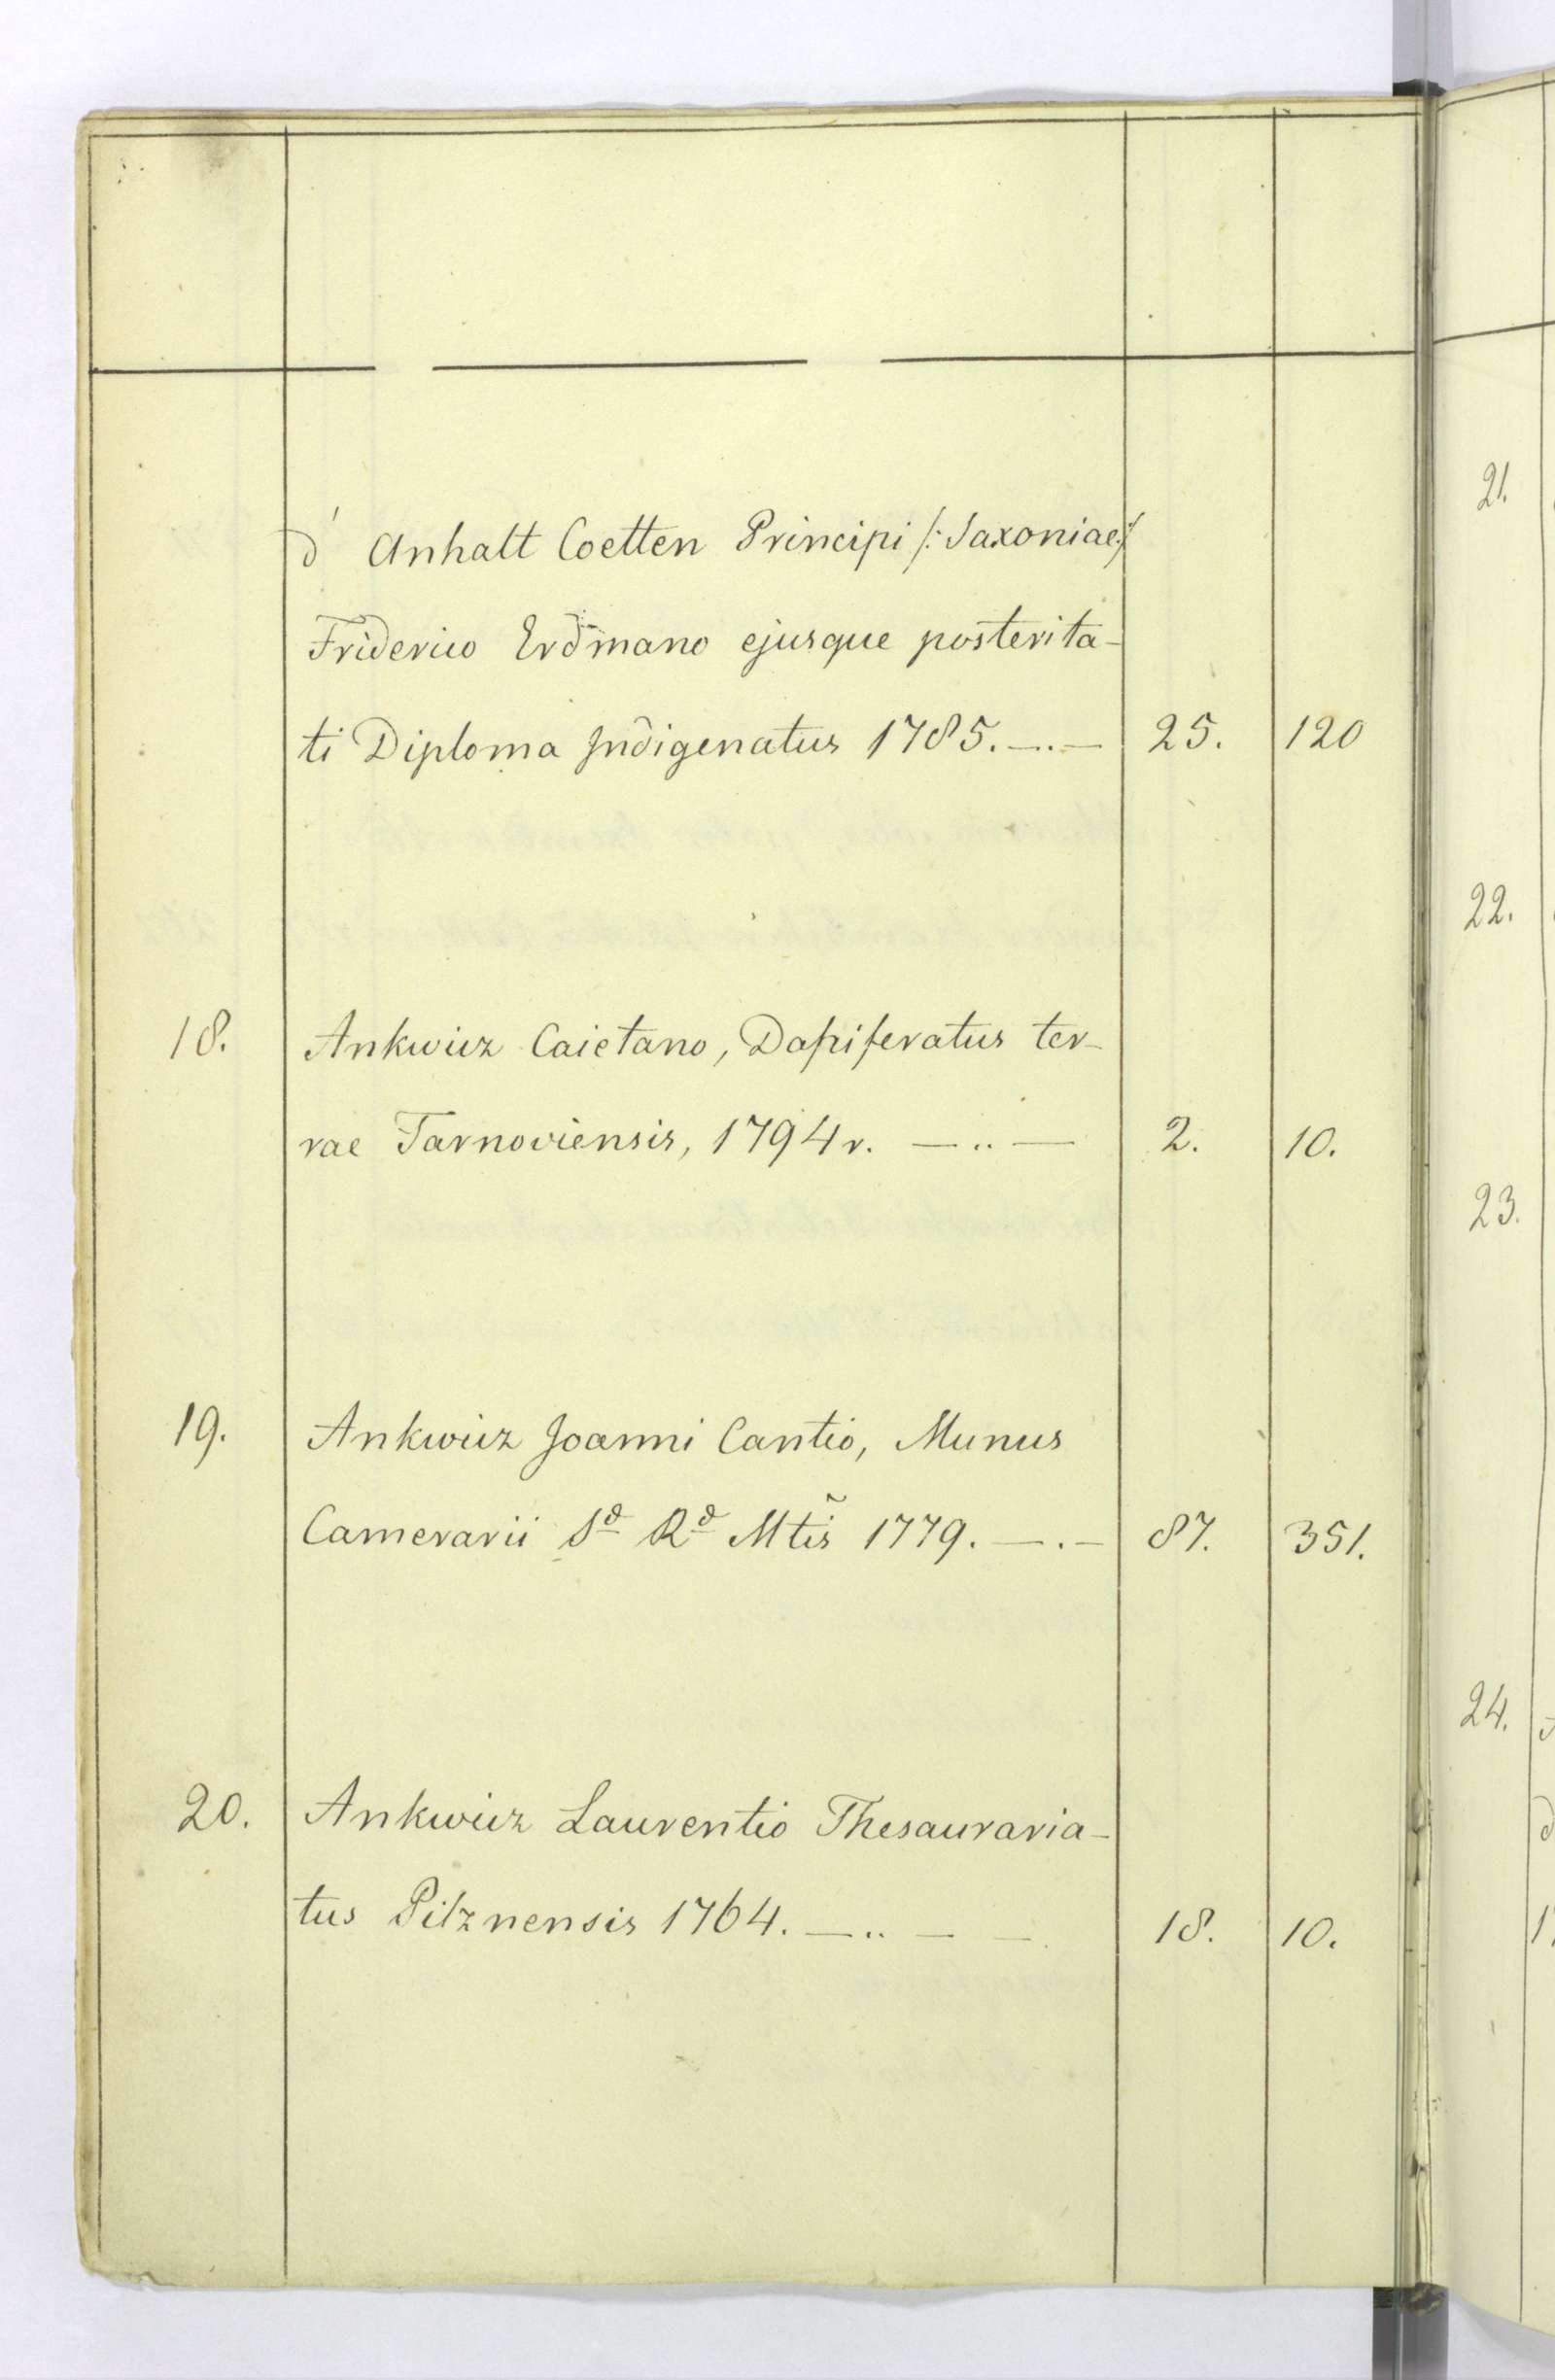 d' Anhalt Coetten Principi /: Saxoniae :/
Friderico Erdmano ejusque posterita-
ti Diploma Indigenatus 1785. —.— 25. 120
18. Ankwicz Caietano, Dapiferatus ter-
rae Tarnoviensis, 1794 r. — .. — 2. 10.
19. Ankwicz Joanni Cantio, Munus
Camerarii Sæ Ræ Mtis̃ 1779. — . — 87. 351.
20. Ankwicz Laurentio Thesauraria-
tus Pilznensis 1764. — .. — — 18. 10.
21.
22.
23.
24.